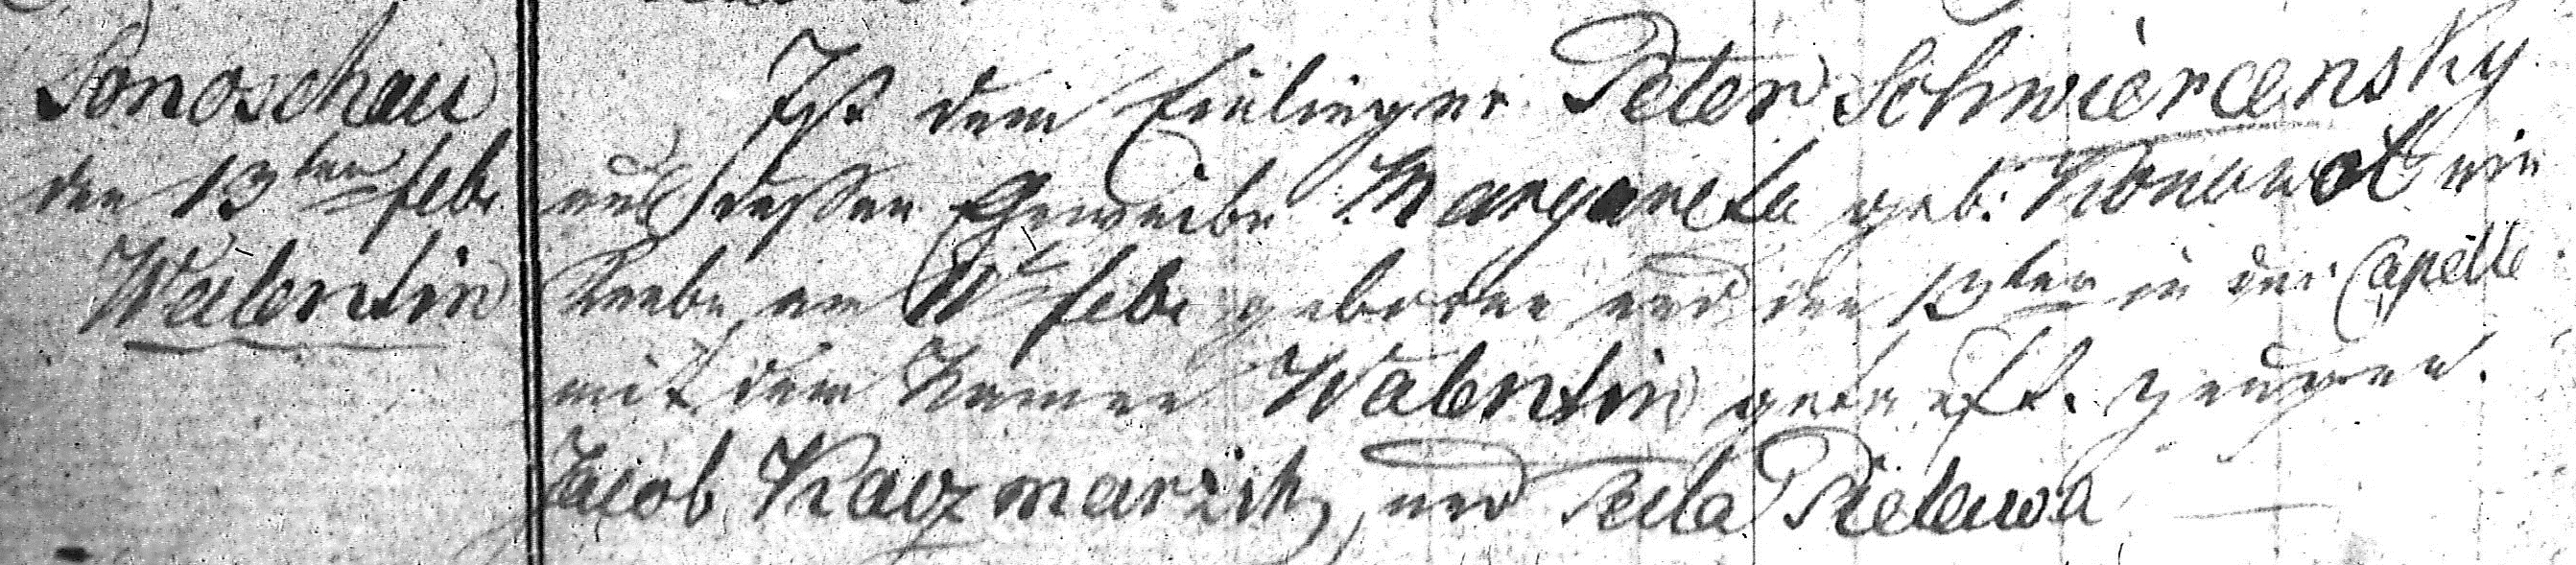 Ponoschau
den 13ten Febr
Walentin
Ist dem Einlieger Peter Schwiercensky
und dessen Eheweibe Margareta geb: Konowol ein
Knabe am 11t Febr gebohren und den 13ten in der Capelle
mit dem Namen Walentin getauft. Zeugen.
Jacob Kaczmarzik, und Pielewa